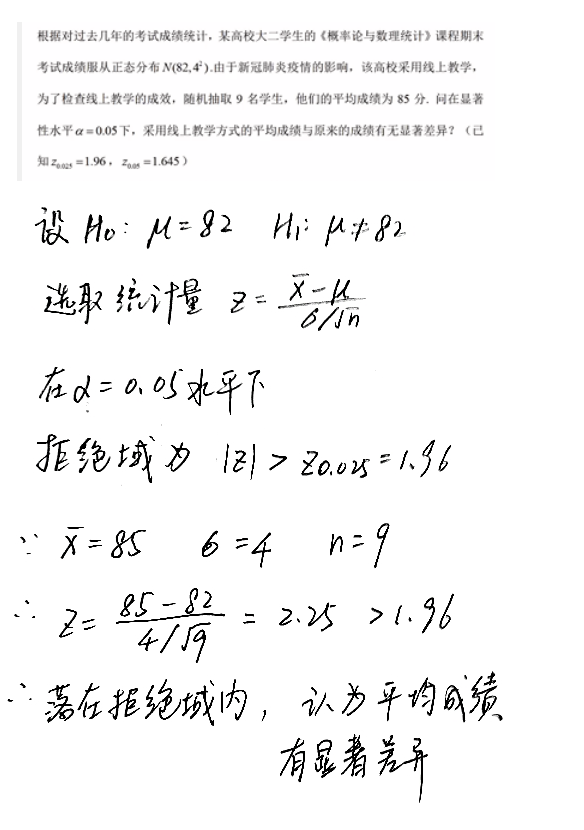 根据对过去几年的考试成绩统计，某高校大二学生的《概率论与数理统计》课程期末
考试成绩服从正态分布 N(82,4²).由于新冠肺炎疫情的影响，该高校采用线上教学，
为了检查线上教学的成效，随机抽取 9 名学生，他们的平均成绩为 85 分. 问在显著
性水平 α=0.05 下，采用线上教学方式的平均成绩与原来的成绩有无显著差异？（已
知 z₀.₀₂₅ =1.96，z₀.₀₅ =1.645）
设 H₀: μ=82 H₁: μ≠82
选取统计量 z = (x̄-μ)/(σ/√n)
在 α=0.05 水平下
拒绝域为 |z| > z₀.₀₂₅=1.96
∵ x̄=85 σ=4 n=9
∴ z = (85-82)/(4/√9) = 2.25 >1.96
∴ 落在拒绝域内，认为平均成绩
有显著差异